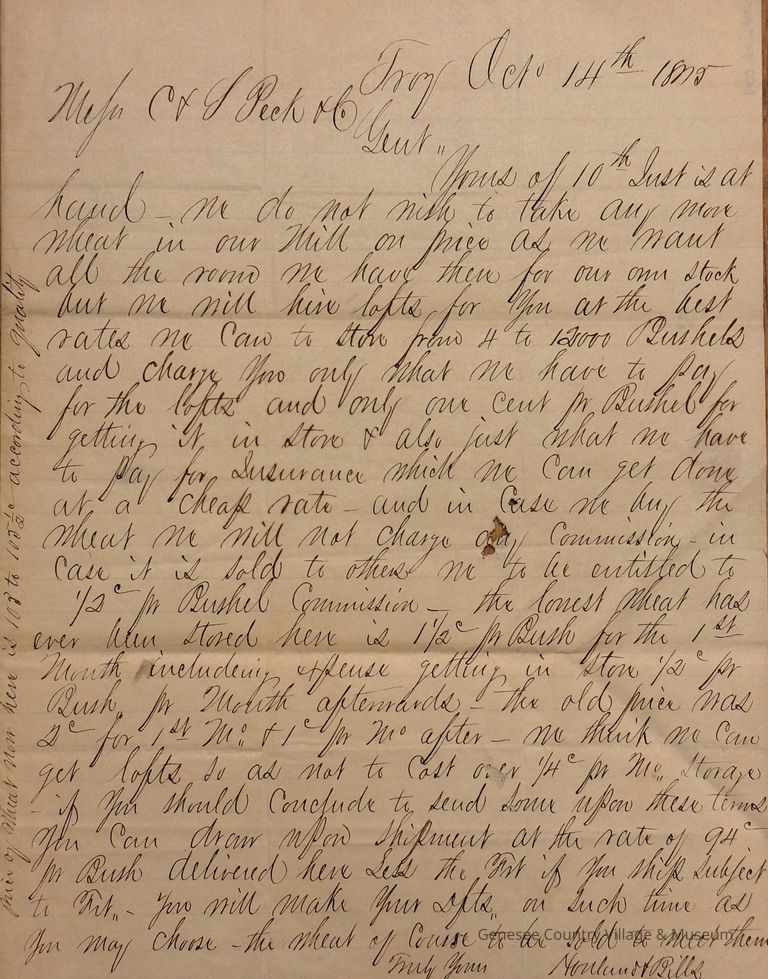 Troy Oct 14th 18
Mess C & S Peck & Co
Gent"
Yours of 10th Inst is at
hand – we do not wish to take any more
wheat in our Mill on price as we want
all the room we have then for our own stock
but we will hire lofts for You at the best
rates we Can to store from 4 to 12000 Bushels
and charge You only what we have to Pay
for the lofts and only one cent pr Bushel for
getting it in store & also just what we have
to Pay for Insurance which we Can get done
at a cheap rate – and in Case we buy the
wheat we will not charge any Commission – in
Case it is sold to others we to be entitled to
1/2c pr Bushel Commission – the lowest Wheat has
ever been stored here is 1 1/2c pr Bush for the 1st
Month including expense getting in store 1/2c pr
Bush" pr Month afterwards – the old price was
2c for 1st Mo. & 1c pr Mo after – we think we Can
get lofts so as not to Cost over 1/4c pr Mo" Storage
– if You should Conclude to send some upon these terms
You Can draw upon shipment at the rate of 94c
pr Bush delivered here Less the Frt if You ship subject
to Frt" – You will make Your Dfts" on such time as
You may choose – the wheat of Course to be sold to meet them
Truly Yours
Howland & Bills
Price of Wheat now here is 103 to 105 1/2c according to quality
Genesee Country Village & Museum